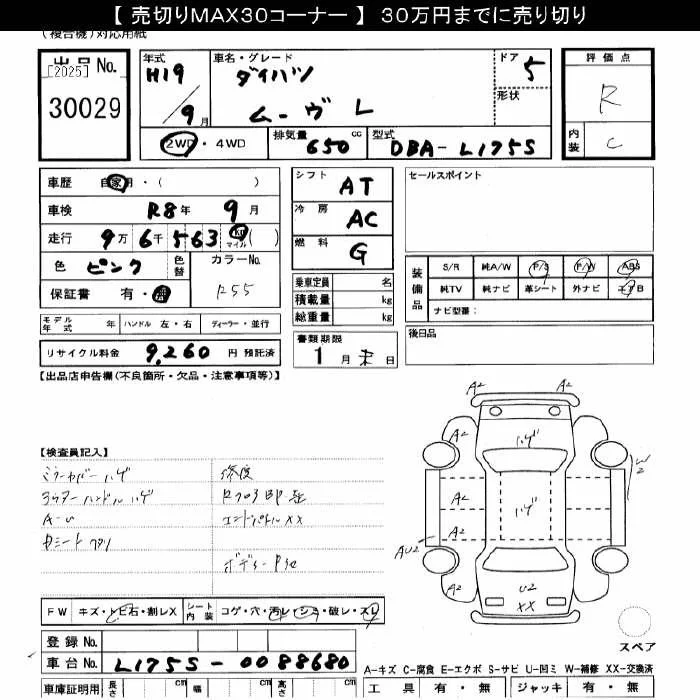 【 売切りMAX30コーナー 】 30万円までに売り切り
(複合機)対応用紙
出品No.
[2025]
30029
年式 H19 / 9月
車名・グレード ダイハツ ムーヴ L
ドア 5
形状
2WD・4WD
排気量 650 cc
型式 DBA-L175S
評価点 R
内装 C
車歴 自家用・( )
車検 R8年 9月
走行 9万 6千 563 km マイル ( )
色 ピンク 色替 カラーNo. R55
保証書 有・無
モデル年式 年 ハンドル 左・右 ディーラー・並行
リサイクル料金 9,260 円 預託済
シフト AT
冷房 AC
燃料 G
乗車定員 名
積載量 kg
総重量 kg
書類期限 1月末日
セールスポイント
装備品
S/R 純A/W P/S P/W ABS
純TV 純ナビ 革シート 外ナビ エアB
ナビ型番:
後日品
【出品店申告欄(不良箇所・欠品・注意事項等)】
【検査員記入】
ミラーカバーハゲ
アウターハンドルハゲ
A-U
修復
エンドパネルXX
FW キズ・トビ石・割レX
シート内装 コゲ・穴・汚レ・シミ・破レ・スレ
登録No.
車台No. L175S-0088680
車庫証明用 長さ cm 幅 cm 高さ cm
A2 A2
A2 ハゲ A2
A2 ハゲ W2
A2
AU2
A2 U2 XX A2
スペア
A-キズ C-腐食 E-エクボ S-サビ U-凹ミ W-補修 XX-交換済
工具 有・無 ジャッキ 有・無